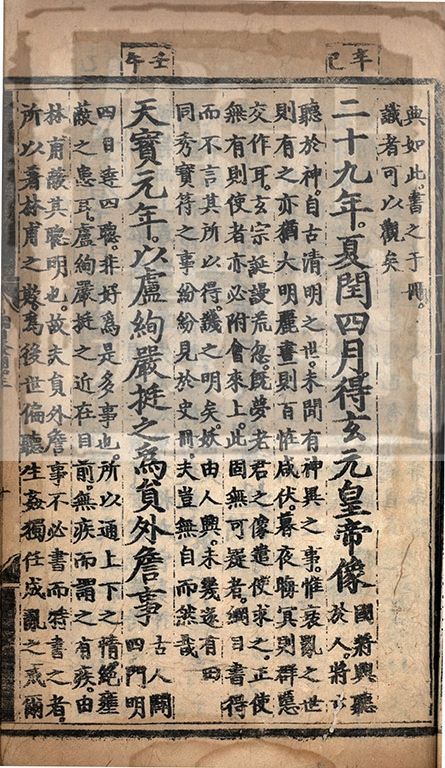 辛巳
典如此。書之于冊。
識者可以觀矣
二十九年。夏閏四月。得玄元皇帝像
國將興聽
於人。將亡
聽於神。自古清明之世。未聞有神異之事。惟衰亂之世
則有之亦猶大明麗晝則百怪咸伏。暮夜晦冥則群慝
交作耳。玄宗誕謾荒忽。旣夢老君之像遣使求之。正使
無有則使者亦必附會來上。此固無可疑者。綱目書得
而不言其所以得。譏之明矣。妖由人興。未幾遂有田
同秀寶符之事紛紛見於史冊。夫豈無自而然哉
壬午
天寳元年。以盧絢嚴挺之爲貟外詹事
古人闢
四門明
四目達四聰。非好爲是多事也。所以通上下之情絶壅
蔽之患耳。盧絢嚴挺之近在目前。無疾而謂之有疾。由
林甫蔽其聰明也。故夫貟外詹事不必書而特書之者。
所以著林甫之欺爲後世偏聽生姦獨任成亂之戒爾